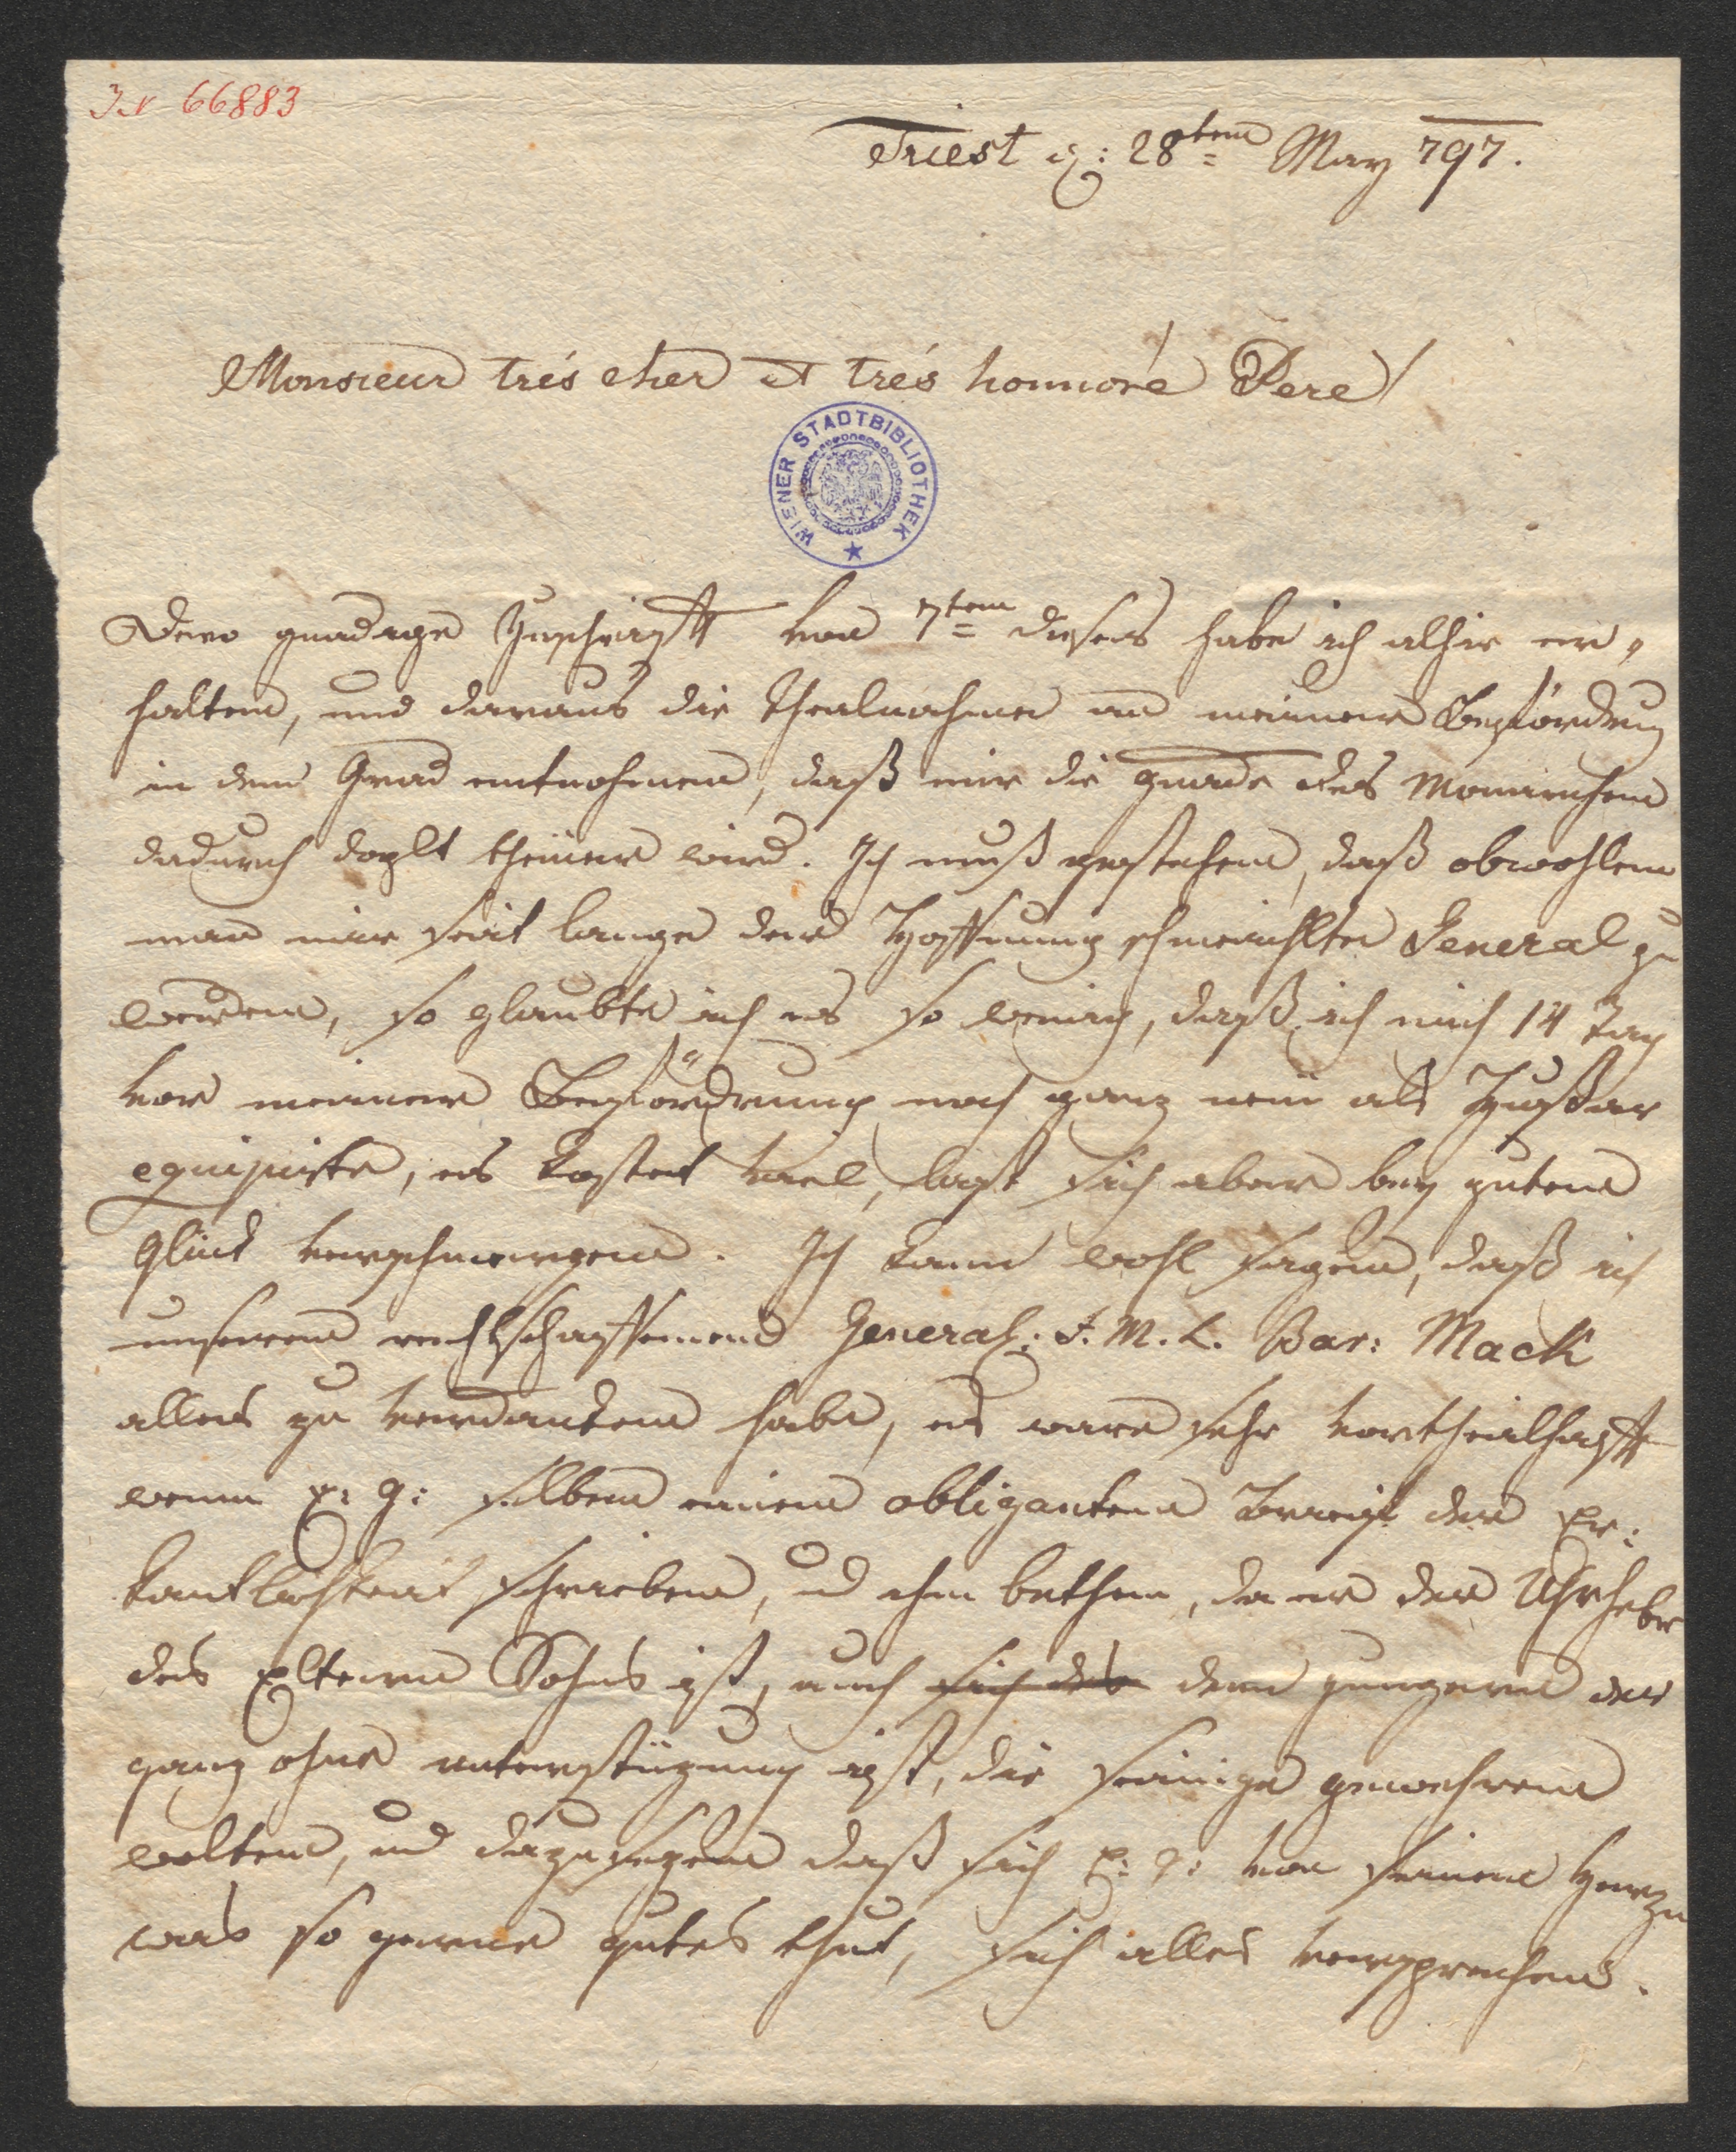 I.N 66883
Triest d: 28ten May 797.
Monsieur trés cher et trés honnoré Pere!
WIENER STADTBIBLIOTHEK
Dero gnadige Zuschrifft von 7ten dieses habe ich alhir er,
halten, und daraus die Theilnahme an meiner Beförderung
in dem Grad entnohmen, daß mir die gnade des Monarchen
dadurch doplt theuer wird. Ich muß gestehen, daß obwohlen
man mir seit lange der Hoffnung schmeichlte General zu
werden, so glaubte ich es so wenig, daß ich mich 14 Tag
vor meiner Beförderung noch ganz neu als Hußar
equipirte, es kostet viel, last sich aber bey guten
Glück verschmerzen. Ich kann wohl sagen, daß ich
unseren rechtschaffenen General: F. M. L. Bar: Mack
alles zu verdanken habe, es ware sehr vortheilhafft
wenn E: g: selben einen obliganten Brief der Er:
kantlichkeit schrieben, und ihm bethen, da er der Uhrheber
des Eltern Sohns ist, auch sich des dem jungern der
ganz ohne unterstüzung ist, die seinige gewehren
wolten, und dazusezen daß sich E: g: von seinen Herzen
was so gerne gutes thut, sich alles versprechen.